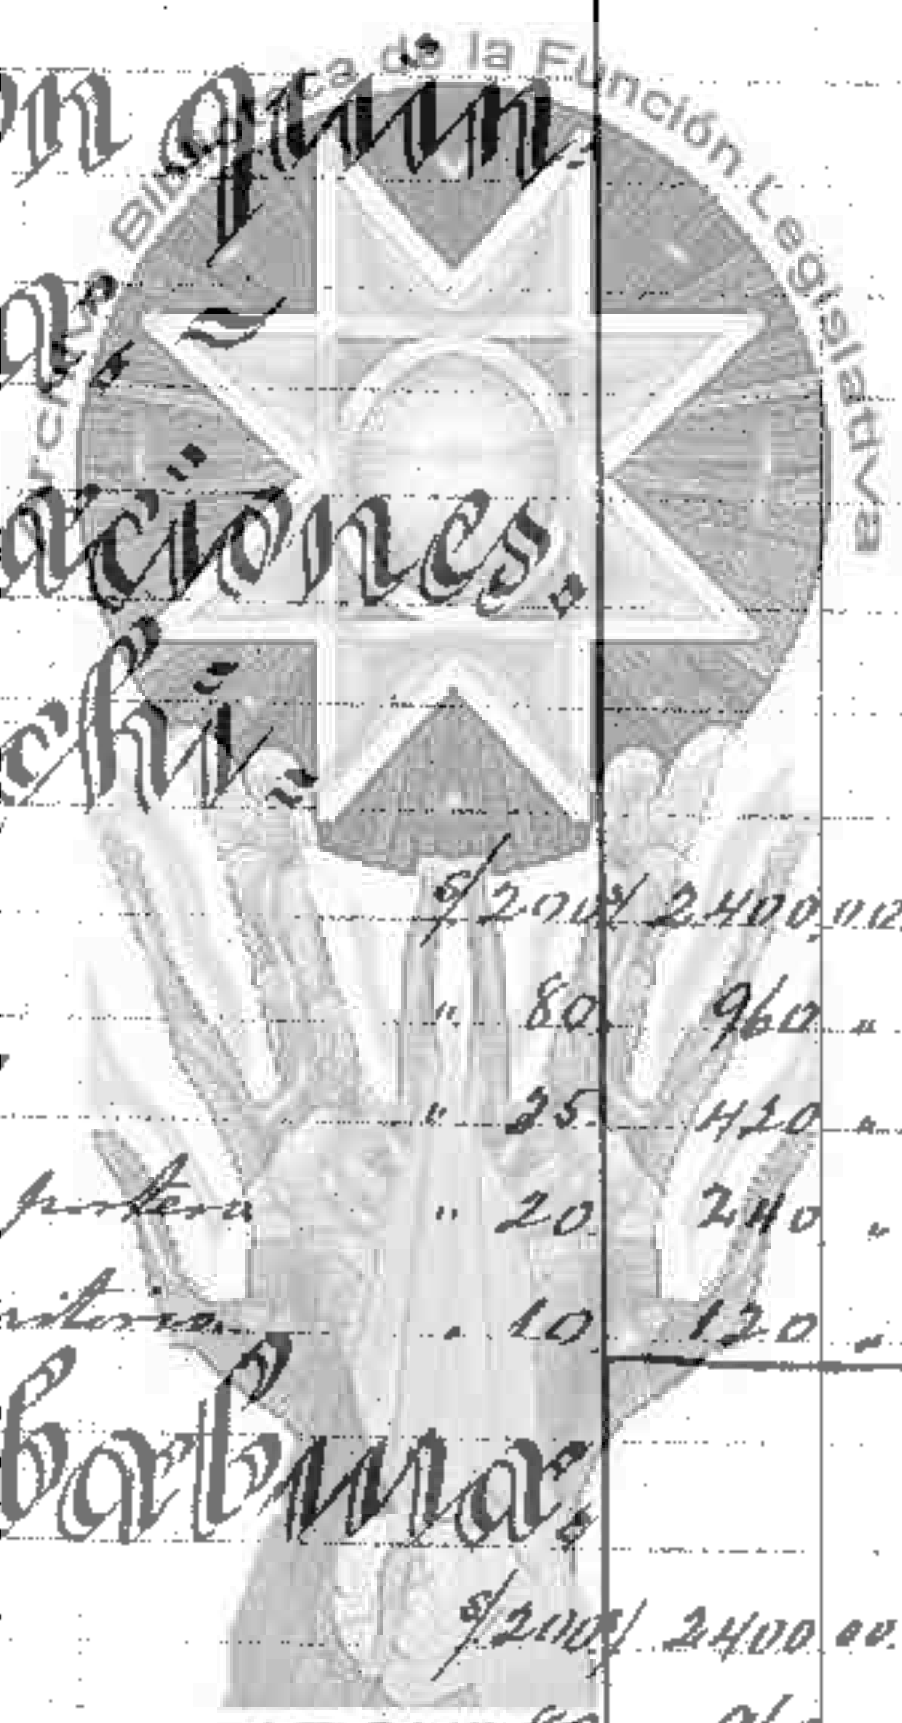 Biblioteca de la Función Legislativa
on quin
aciones.
chi.
s/ 200 s/ 2400,00
" 80. 960 "
" 35. 420 "
portera " 20. 240 "
" 10. 120 "
babura.
s/ 200 s/ 2400 00.